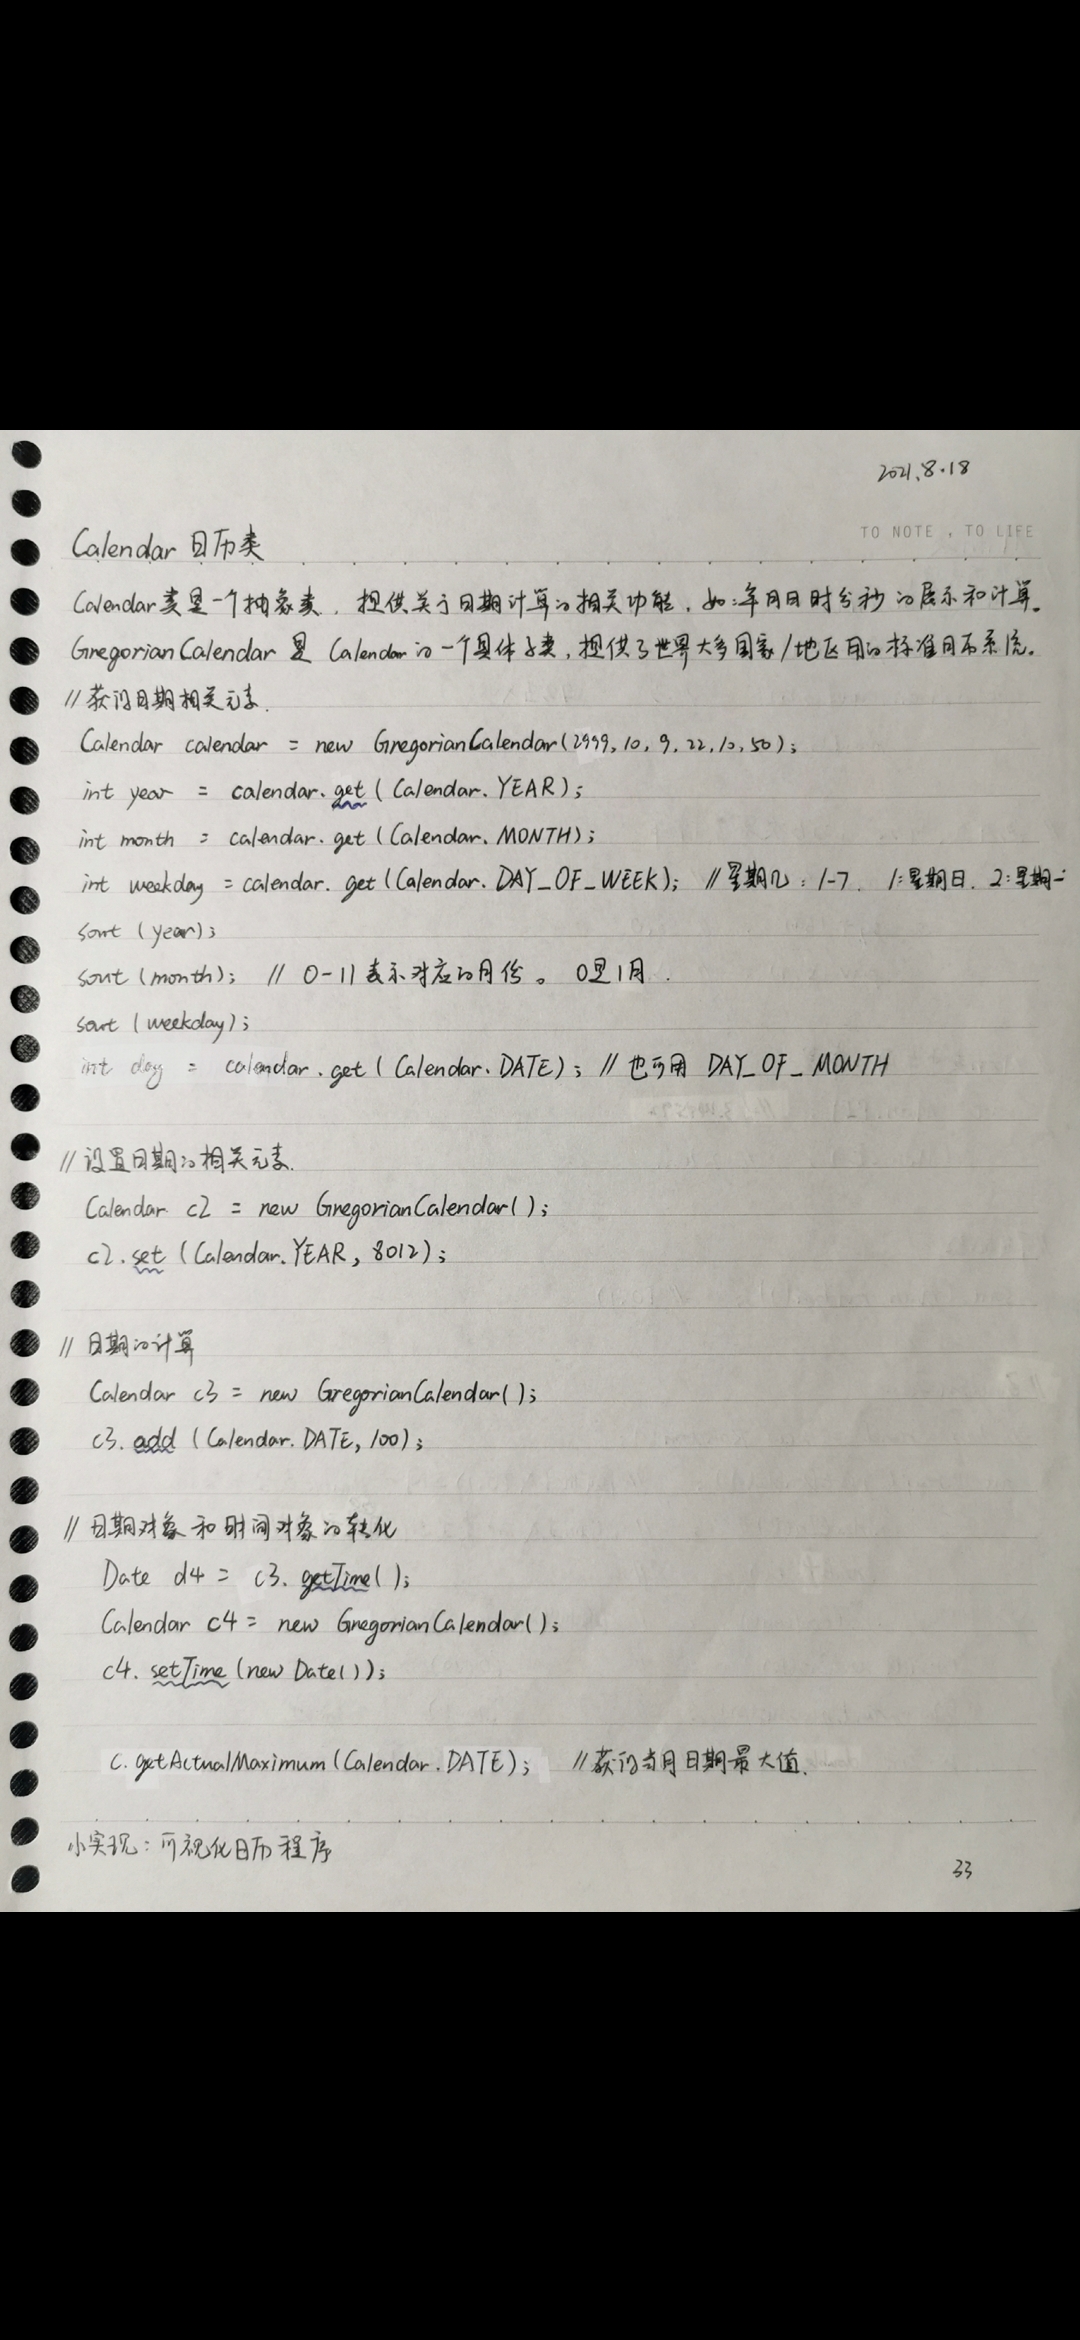 2021.8.18
TO NOTE , TO LIFE
Calendar 日历类
Calendar类是一个抽象类，提供关于日期计算的相关功能，如:年月日时分秒的展示和计算。
GregorianCalendar 是 Calendar的一个具体子类，提供了世界大多国家/地区用的标准日历系统。
// 获得日期相关元素.
Calendar calendar = new GregorianCalendar(2999, 10, 9, 22, 10, 50);
int year = calendar.get(Calendar.YEAR);
int month = calendar.get(Calendar.MONTH);
int weekday = calendar.get(Calendar.DAY_OF_WEEK); // 星期几: 1-7. 1:星期日. 2:星期一
sout (year);
sout (month); // 0-11 表示对应的月份。 0是1月.
sout (weekday);
int day = calendar.get(Calendar.DATE); // 也可用 DAY_OF_MONTH
// 设置日期的相关元素.
Calendar c2 = new GregorianCalendar();
c2.set (Calendar.YEAR, 8012);
// 日期的计算
Calendar c3 = new GregorianCalendar();
c3.add (Calendar.DATE, 100);
// 日期对象和时间对象的转化
Date d4 = c3.getTime();
Calendar c4 = new GregorianCalendar();
c4.setTime(new Date());
c.getActualMaximum(Calendar.DATE); // 获得当月日期最大值.
小实现: 可视化日历程序
33